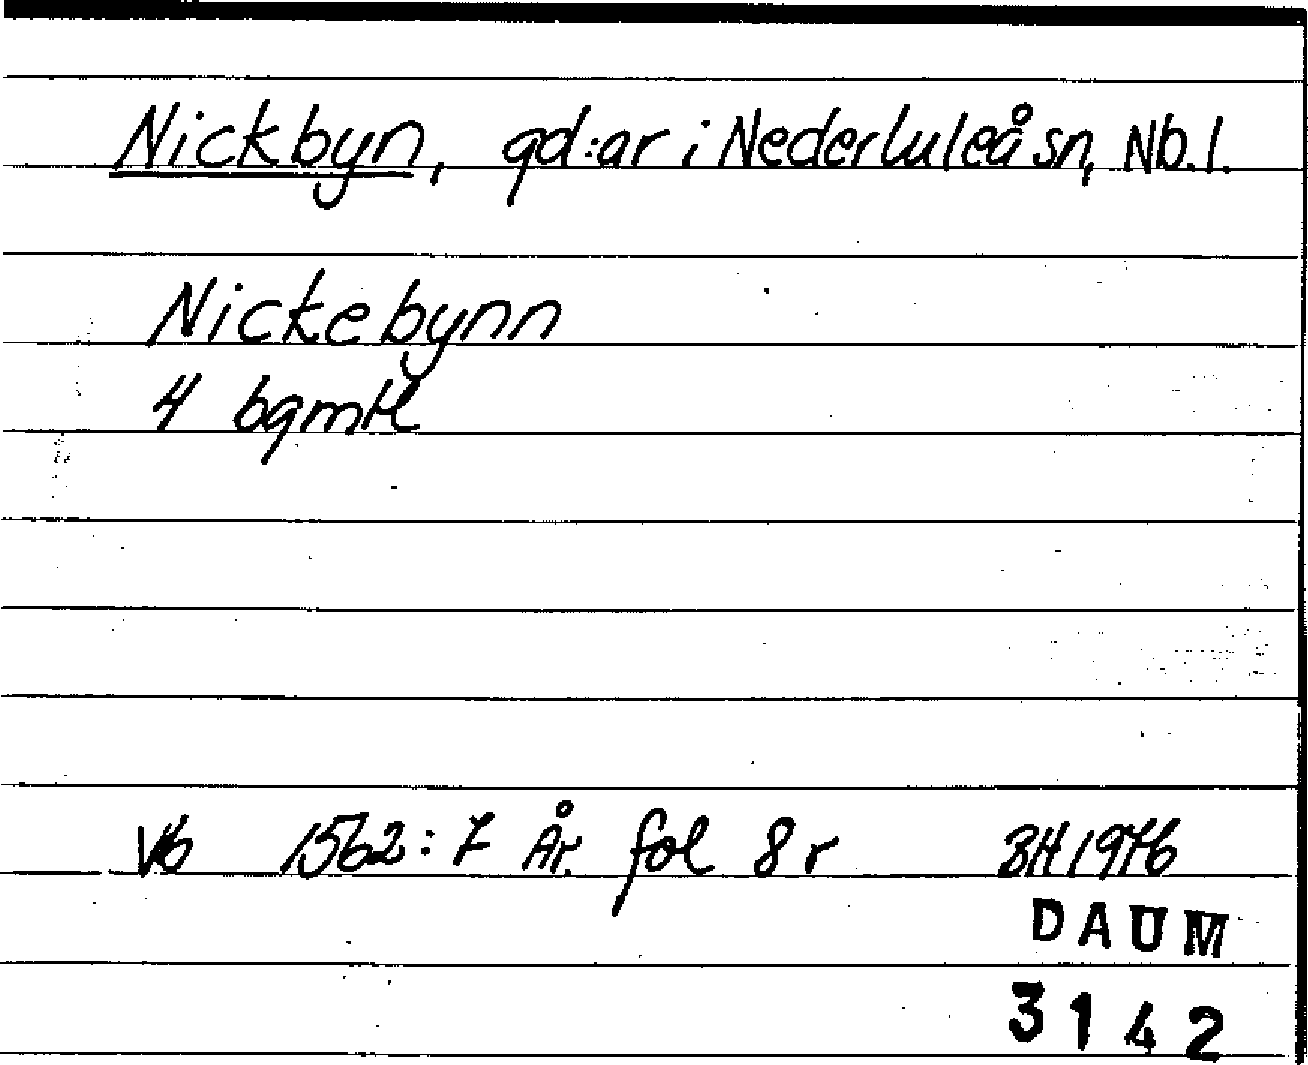 Nickbyn, gd:ar i Nederluleå sn, Nb.l.
Nickebynn
4 bgmtl
Vb 1562:7 År. fol 8 r BH 1976
DAUM
3142